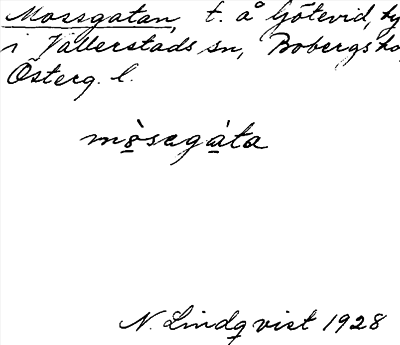 Mossgatan, t. å Götevid, by
i Vallerstads sn, Bobergs
Österg. l.
mòsagáta
N. Lindqvist 1928